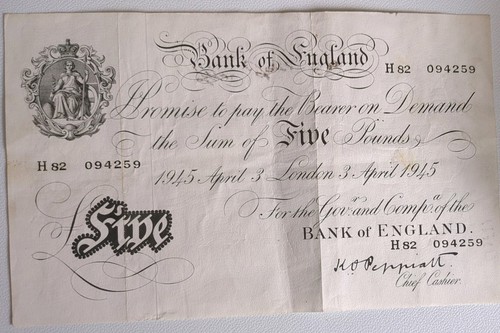 Bank of England
H 82 094259
I Promise to pay the Bearer on Demand
the Sum of Five Pounds
H 82 094259
1945 April 3 London 3 April 1945
For the Gov.r and Comp.a of the
BANK of ENGLAND.
H 82 094259
£Five
K O Peppiatt
Chief Cashier.